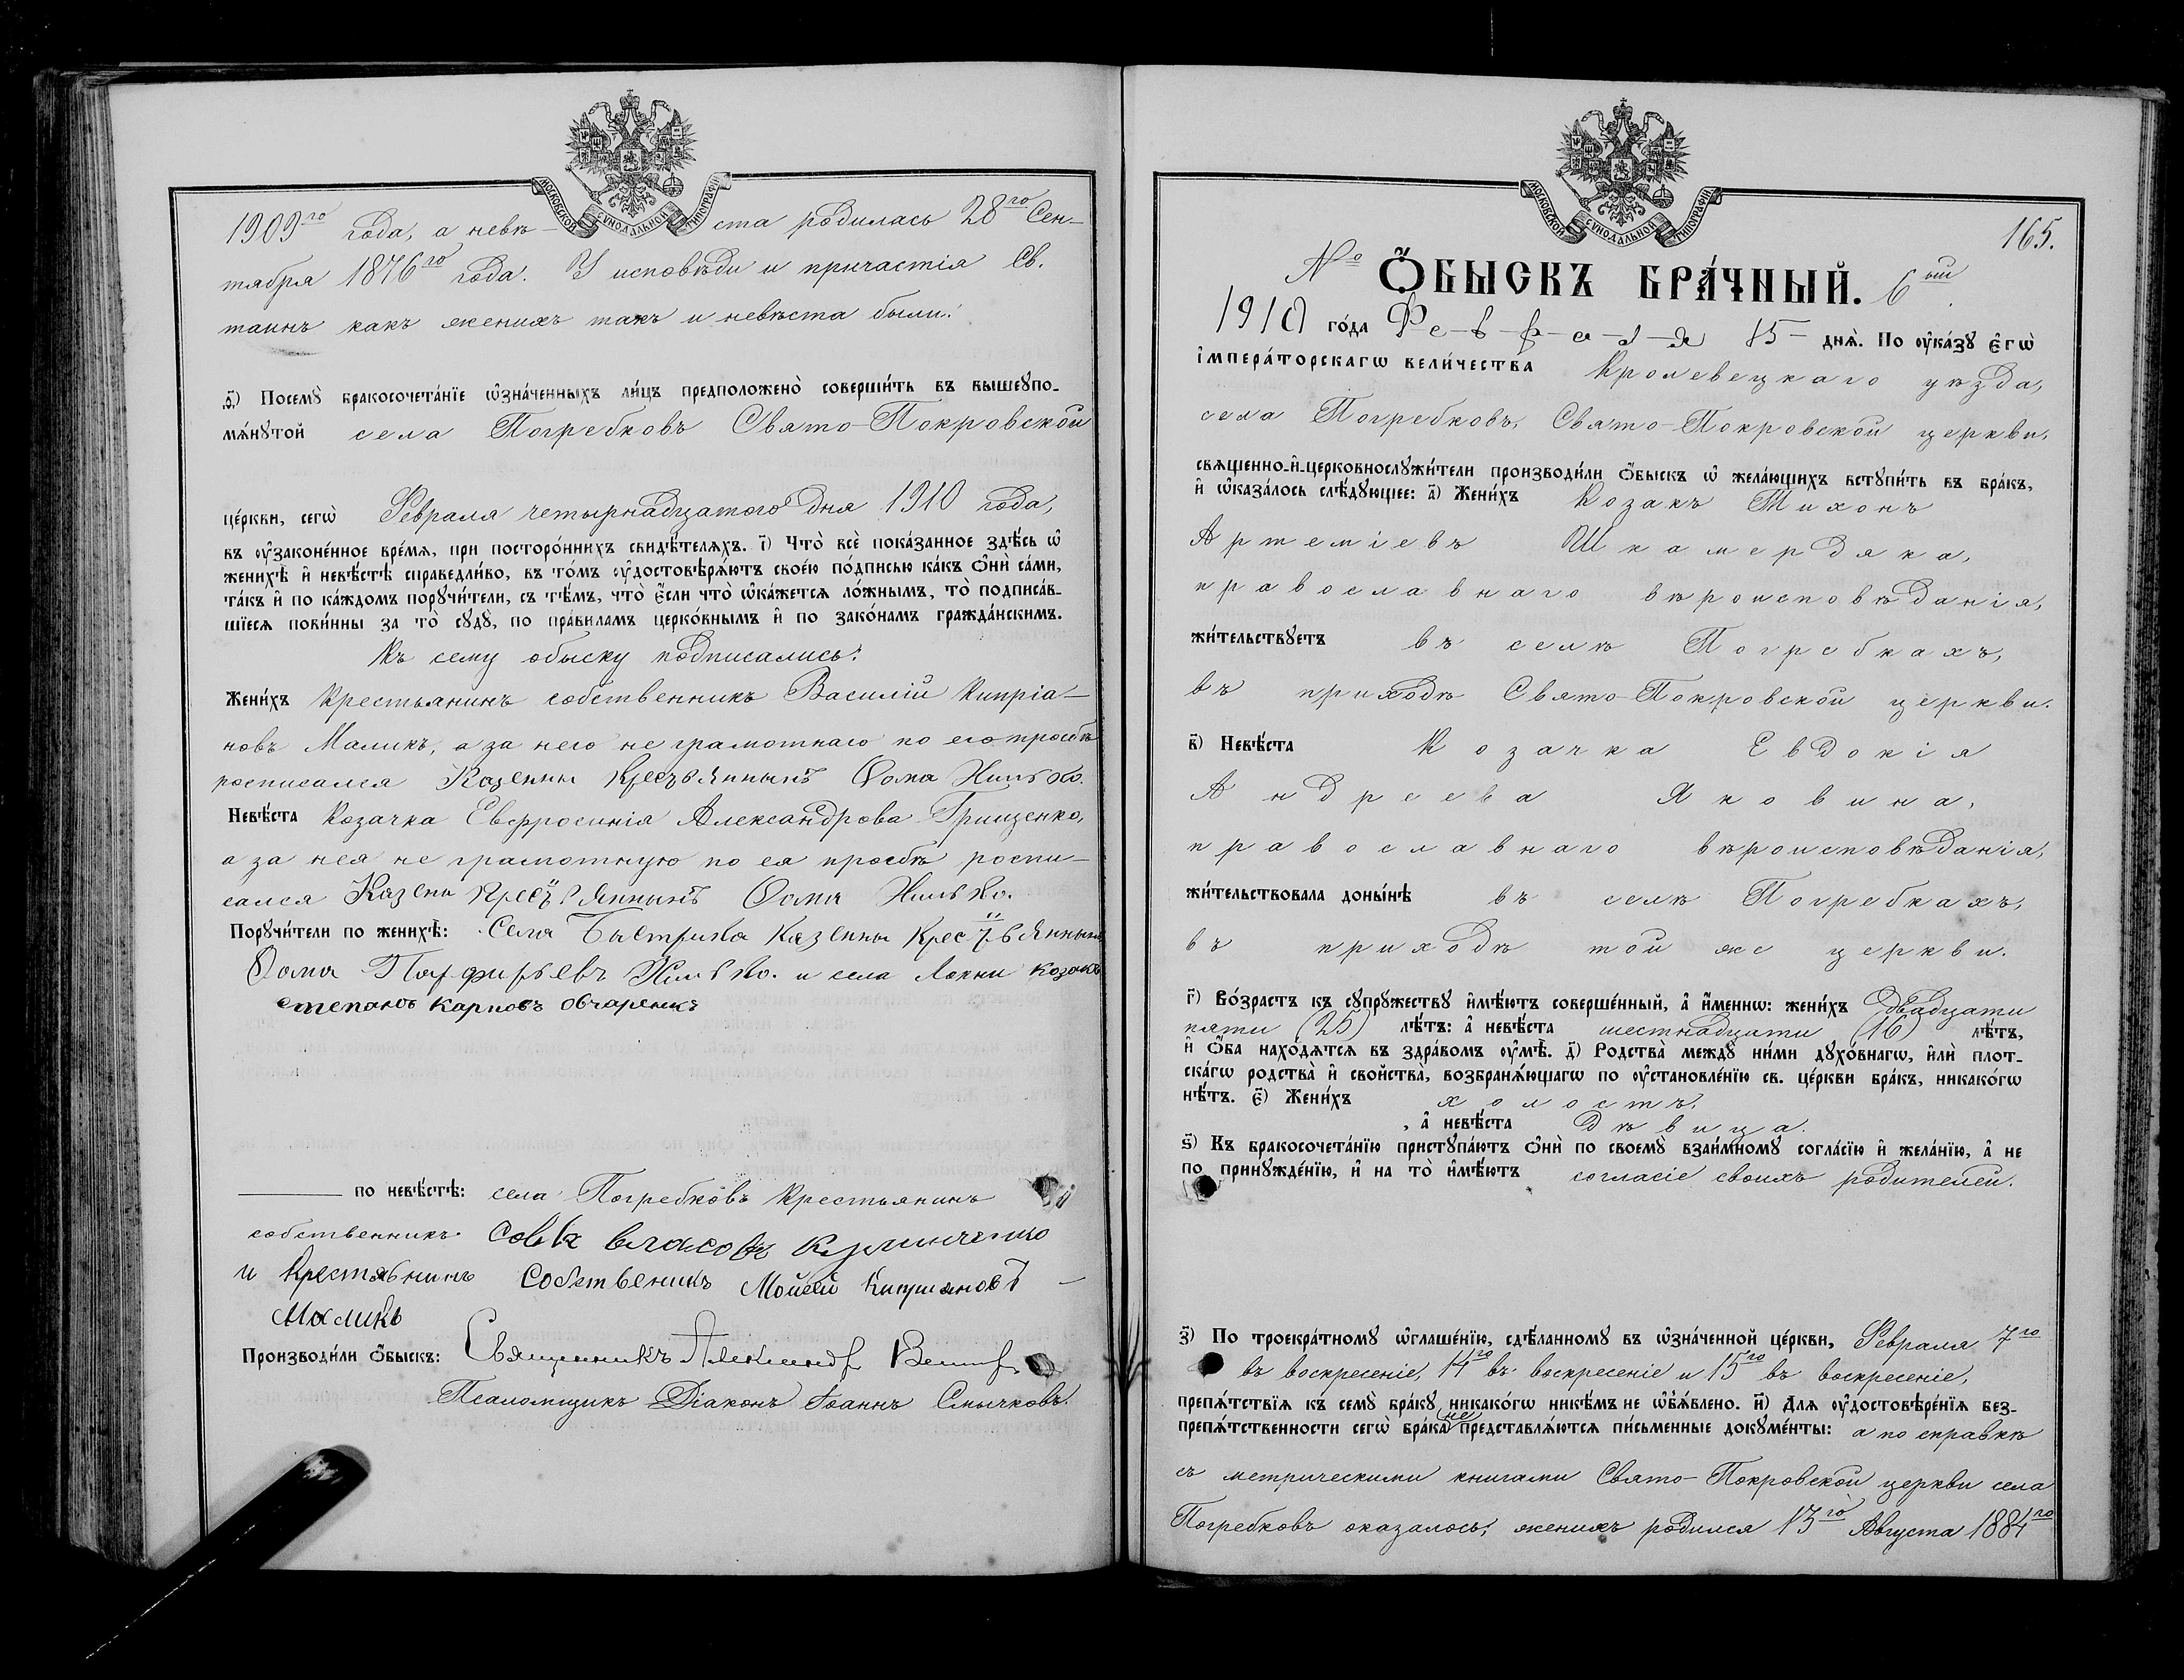 МОСКОВСКОЙ СѴНОДАЛЬНОЙ ТИПОГРАФІИ
1909го года, а невѣ- ста родилась 28го Сен-
тября 1876го года. У исповѣди и причастія Св.
таинъ какъ женихъ такъ и невѣста были.
Посемꙋ̀ бракосочета́нїе ѡ҆зна́ченныхъ ли́цъ предположено̀ соверши́ть въ вышеꙋпо-
мѧ́нꙋтой села Погребковъ Свято-Покровской
це́ркви, сегѡ̀ Февраля четырнадцатого дня 1910 года,
въ ᲂу҆законе́нное вре́мѧ, при посторо́ннихъ свидѣ́телѧхъ. і҃) Что̀ всѐ пока́занное здѣ́сь ѡ҆
женихѣ̀ и҆ невѣ́стѣ справедли́во, въ то́мъ ᲂу҆достовѣрѧ́ютъ свое́ю по́дписью ка́къ ѻ҆нѝ са́ми,
та́къ и҆ по ка́ждомъ порꙋчи́тели, съ тѣ́мъ, что̀ є҆́сли что̀ ѡ҆ка́жетсѧ ло́жнымъ, то̀ подписа́в-
шїесѧ пови́нны за то̀ сꙋдꙋ̀, по пра́виламъ церко́внымъ и҆ по зако́намъ гражда́нскимъ.
Къ сему обыску подписались:
Жени́хъ Крестьянинъ собственникъ Василій Кипріа-
новъ Маликъ, а за него не грамотнаго по его просьбѣ
росписался Казенны Ѳома
Невѣ́ста Козачка Евфросинія Александрова Грищенко,
а за нея не грамотную по ея просьбѣ роспи-
сался Казены Ѳома
Порꙋчи́тели по женихѣ̀: Села Быстрика Казенны
Ѳома и села Локни козакъ
степанъ Карповъ Овчаренкъ
по невѣ́стѣ: села Погребковъ Крестьянинъ
собственникъ власовъ
и Крестьянинъ Собственикъ Мойсей
Маликъ
Производи́ли ѻ҆́быскъ: Священникъ
Псаломщикъ Діаконъ Іоаннъ Смычковъ.
МОСКОВСКОЙ СѴНОДАЛЬНОЙ ТИПОГРАФІИ
165.
№ Ѻ҆́БЫСКЪ БРА́ЧНЫЙ. 6ой
1910 го́да Ф-е-в-р-а-л-я 15 - днѧ̀. По ᲂу҆ка́зꙋ Є҆гѡ̀
І҆мпера́торскагѡ вели́чества Кролевецкаго уѣзда,
села Погребковъ, Свято-Покровской церкви,
свѧщенно-и҆-церковнослꙋжи́тели производи́ли ѻ҆́быскъ ѡ҆ жела́ющихъ встꙋпи́ть въ бра́къ,
и҆ ѡ҆каза́лось слѣ́дꙋющее: а҃) Жени́хъ Козакъ Тихонъ
Артеміевъ Шкамердяка,
православнаго вѣроисповѣданія,
жи́тельствꙋетъ въ селѣ Погребкахъ,
въ приходѣ Свято-Покровской церкви.
в҃) Невѣ́ста Козачка Евдокія
Андреева Яковина,
православнаго вѣроисповѣданія,
жи́тельствовала доны́нѣ въ селѣ Погребкахъ,
въ приходѣ той же церкви.
г҃) Во́зрастъ къ сꙋпрꙋжествꙋ и҆мѣ́ютъ соверше́нный, а҆ и҆́менно: жени́хъ двадцати
пяти (25) лѣ́тъ: а҆ невѣ́ста шестнадцати (16) лѣ́тъ,
и҆ ѻ҆́ба нахо́дѧтсѧ въ здра́вомъ ᲂу҆мѣ̀. д҃) Родства̀ междꙋ̀ ни́ми дꙋхо́внагѡ, и҆лѝ плот-
ска́гѡ родства̀ и҆ сво́йства, возбранѧ́ющагѡ по ᲂу҆становле́нїю св. це́ркви бра́къ, никако́гѡ
нѣ́тъ. є҃) Жени́хъ холостъ,
, а҆ невѣ́ста дѣвица.
ѕ҃) Къ бракосочета́нїю пристꙋпа́ютъ ѻ҆нѝ по своемꙋ̀ взаи́мномꙋ согла́сїю и҆ жела́нїю, а҆ не
по принꙋжде́нїю, и҆ на то̀ и҆мѣ́ютъ согласіе своихъ родителей.
з҃) По троекра́тномꙋ ѡ҆глаше́нїю, сдѣ́ланномꙋ въ ѡ҆зна́ченной це́ркви, Февраля 7го
въ воскресеніе, 14го въ воскресеніе и 15го въ воскресеніе,
препѧ́тствїѧ къ семꙋ̀ бра́кꙋ никако́гѡ никѣ́мъ не ѡ҆б̾ѧ́влено. и҃) Длѧ ᲂу҆достовѣре́нїѧ без-
препѧ́тственности сегѡ̀ бра́ка не представлѧ́ютсѧ пи́сьменные докꙋме́нты: а по справкѣ
съ метрическими книгами Свято-Покровской церкви села
Погребковъ оказалось, женихъ родился 13го Августа 1884го